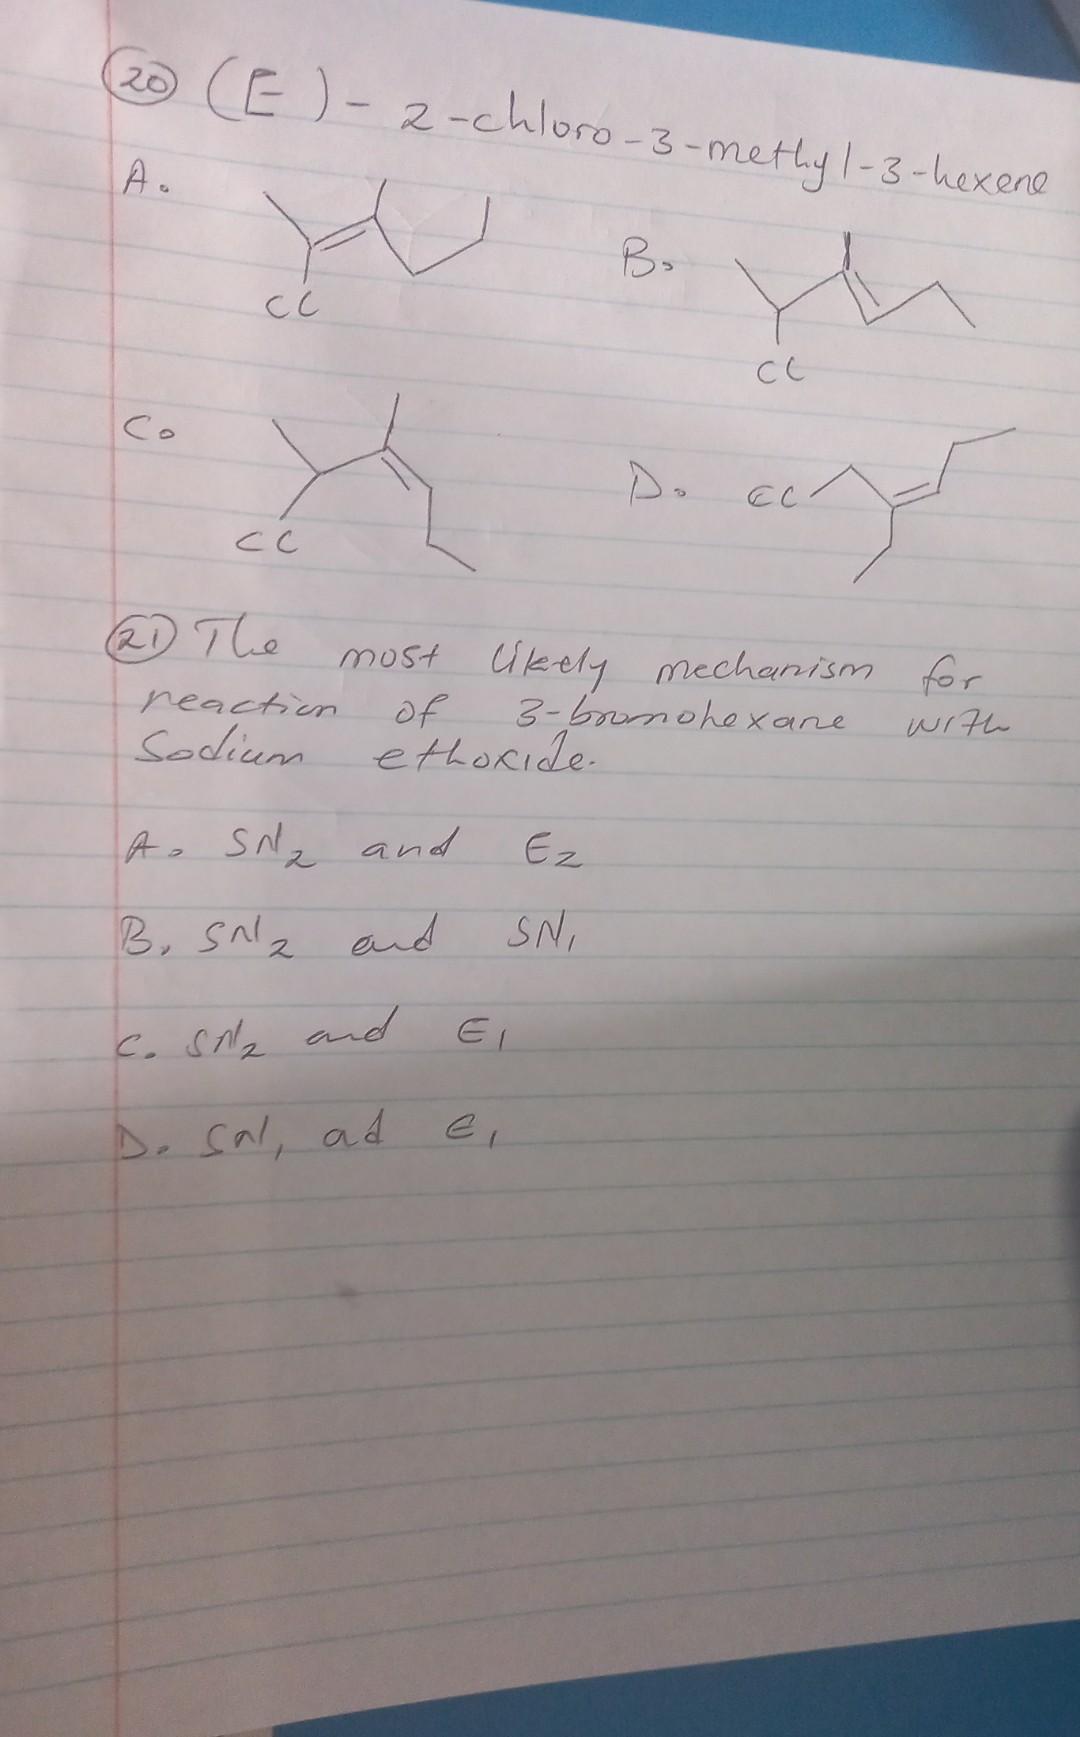 20 (E)-2-chloro-3-methyl-3-hexene
A.
Cl
B.
Cl
C.
Cl
D. Cl
21 The most likely mechanism for
reaction of 3-bromohexane with
Sodium ethoxide.
A. SN2 and E2
B. SN2 and SN1
C. SN2 and E1
D. SN1 ad E1